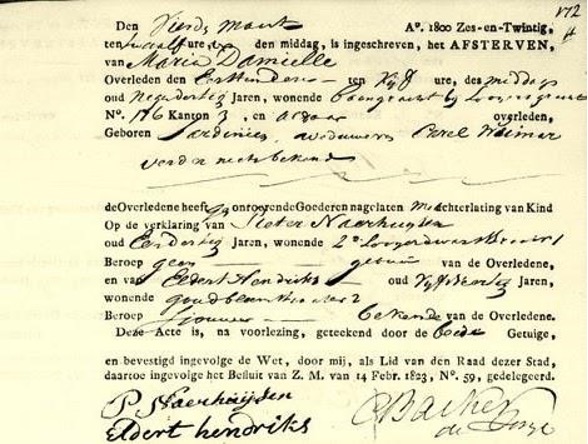 172
Den Vierde maart Aº. 1800 Zes-en-Twintig,
ten twaalf ure, den middag, is ingeschreven, het AFSTERVEN,
van Maria Danielle
Overleden den Eersten dezer ten Vijf ure, des middags
oud Jaren, wonende by
Nº. 176 Kanton 3, en aldaar overleden,
Geboren Sardinien, weduwe van Karel Weimar
verder niets bekend
de Overledene heeft onroerende Goederen nagelaten Met achterlating van Kind
Op de verklaring van Pieter Naerhuysen
oud Een dertig Jaren, wonende 2e Looyersdwarsstraat 1
Beroep geen gebuur van de Overledene,
en van Eldert Hendriks oud Jaren,
wonende goudsbloemstraat 2
Beroep Sjouwer bekende van de Overledene.
Deze Acte is, na voorlezing, geteekend door de beide Getuige,
en bevestigd ingevolge de Wet, door mij, als Lid van den Raad dezer Stad,
daartoe ingevolge het Besluit van Z. M. van 14 Febr. 1823, Nº. 59, gedelegeerd.
P Naerhuijsen
Eldert hendriks
Backer